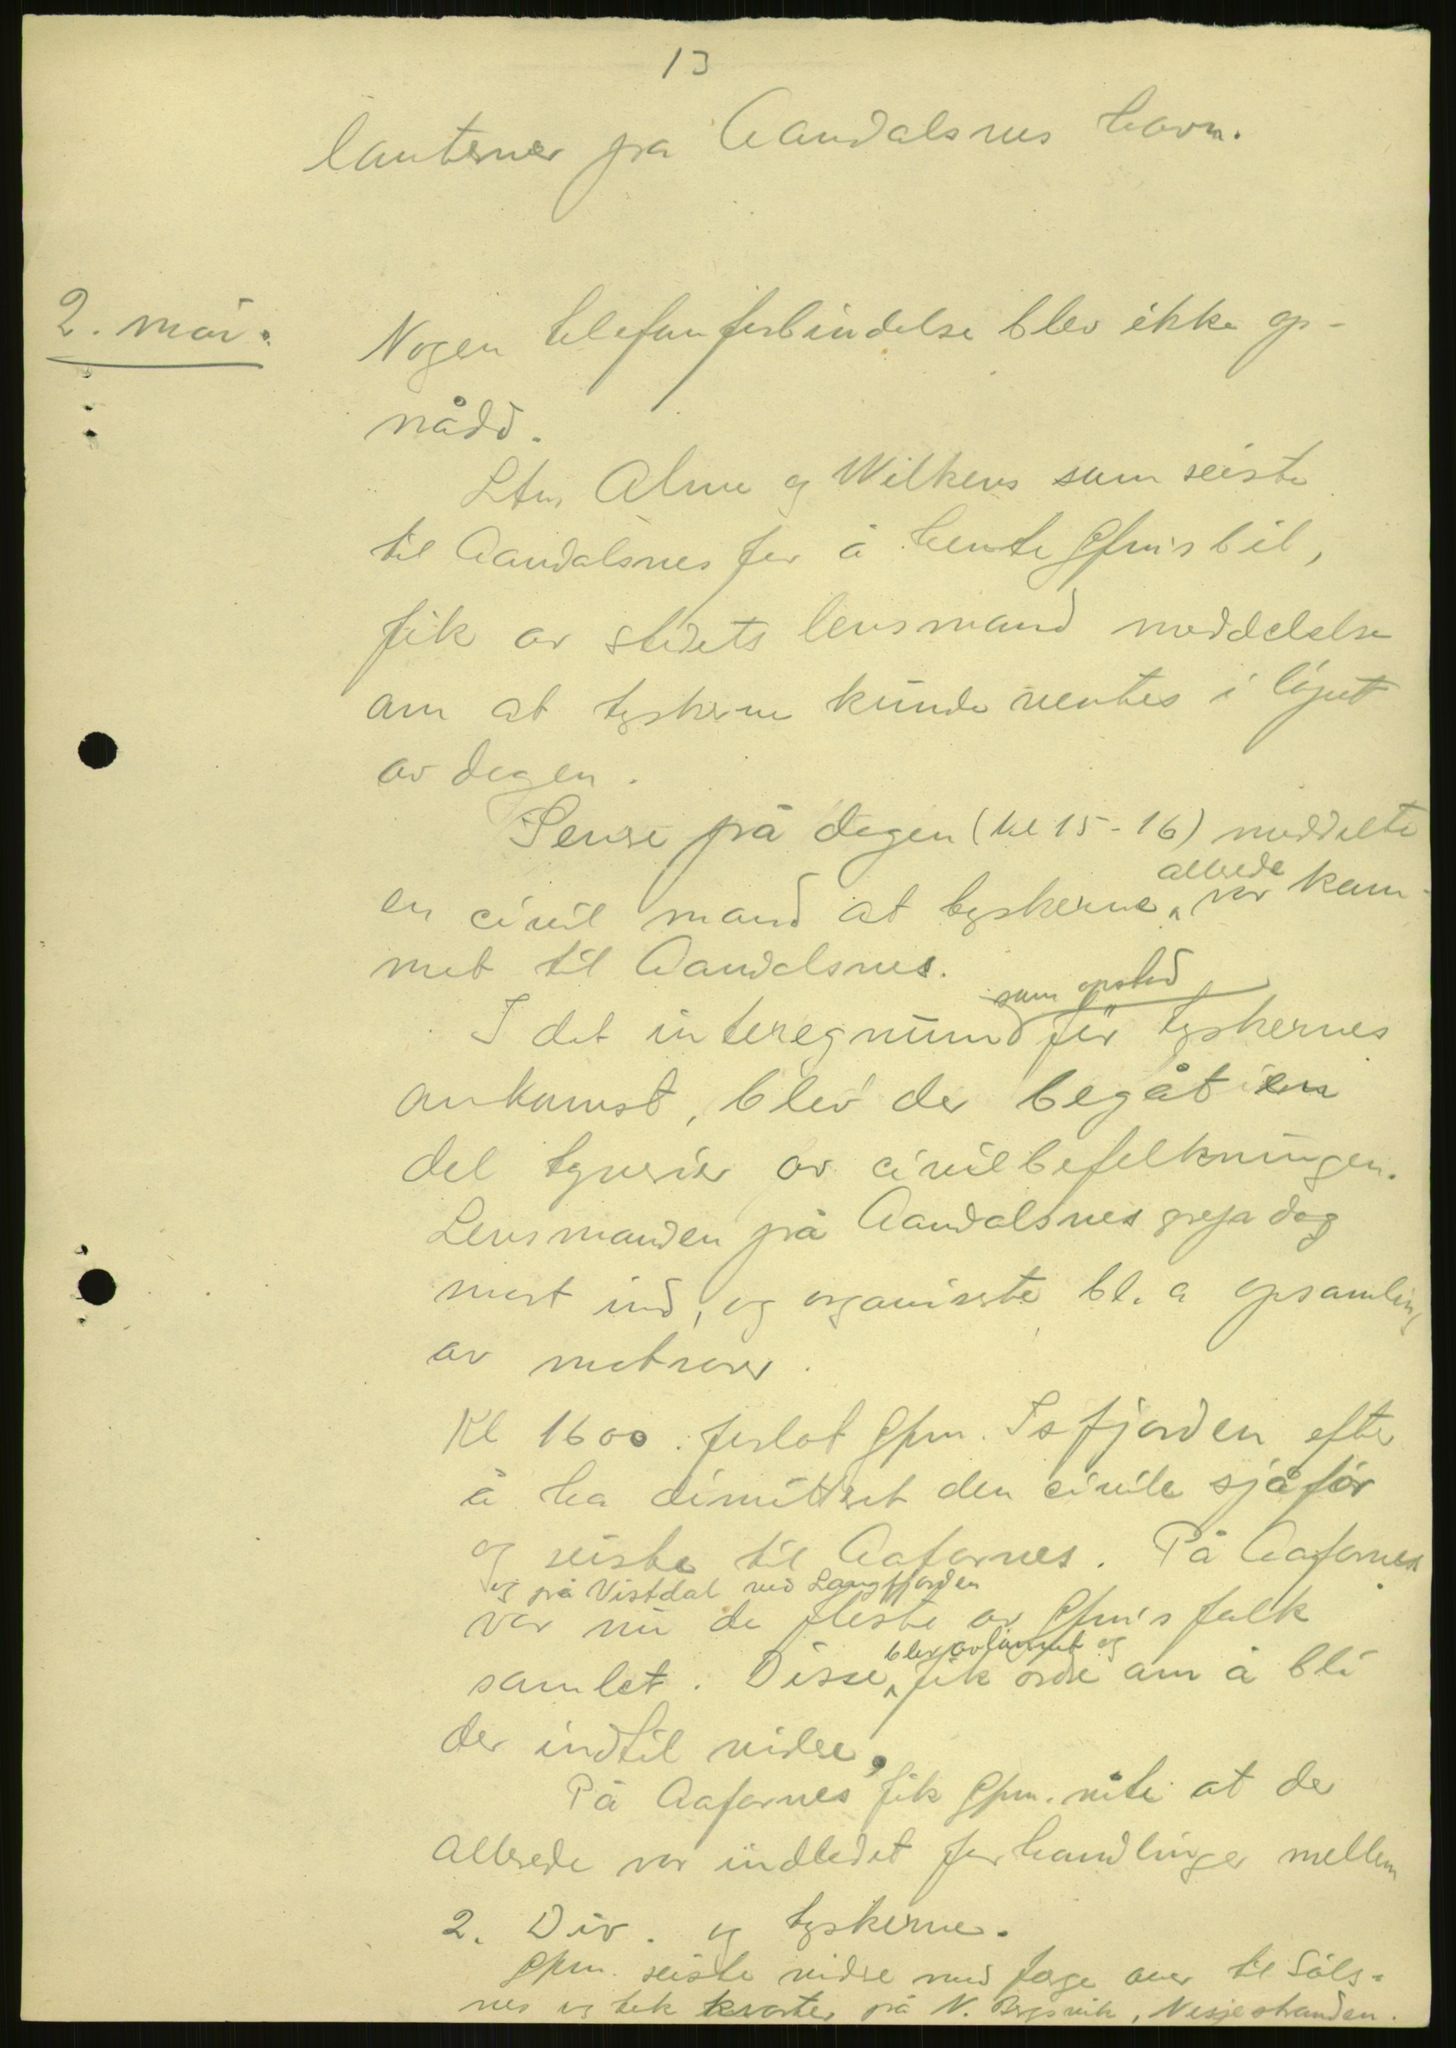 13
lanterner på Aandalsnes havn.
2. mai.
Nogen telefonforbindelse blev ikke op-
nådd.
Ltn. Alme og Wilkens som reiste
til Aandalsnes for å hente Gpm's bil,
fik av stedets lensmand meddelelse
om at tyskerne kunde ventes i løpet
av dagen.
Senere på dagen (kl 15-16) meddelte
en civil mand at tyskerne allerede var kom-
met til Aandalsnes.
I det interegnum som opstod før tyskernes
ankomst, blev der begåt en
del tyverier av civilbefolkningen.
Lensmanden på Aandalsnes grep dog
snart ind, og organiserte bl. a opsamling
av matvarer.
Kl 1600. forlot Gpm. Isfjorden efter
å ha dimittert den civile sjåfør
og reiste til Aafarnes. På Aafarnes
og på Vistdal ved Langfjorden
var nu de fleste av Gpm's folk
samlet. Disse blev avlønnet og fik ordre om å bli
der indtil videre.
På Aafarnes fik Gpm. vite at der
allerede var indledet forhandlinger mellem
2. Div. og tyskerne.
Gpm. reiste videre med færge over til Søls-
nes og tok kvarter på N. Bergsvik, Nesjestranden.